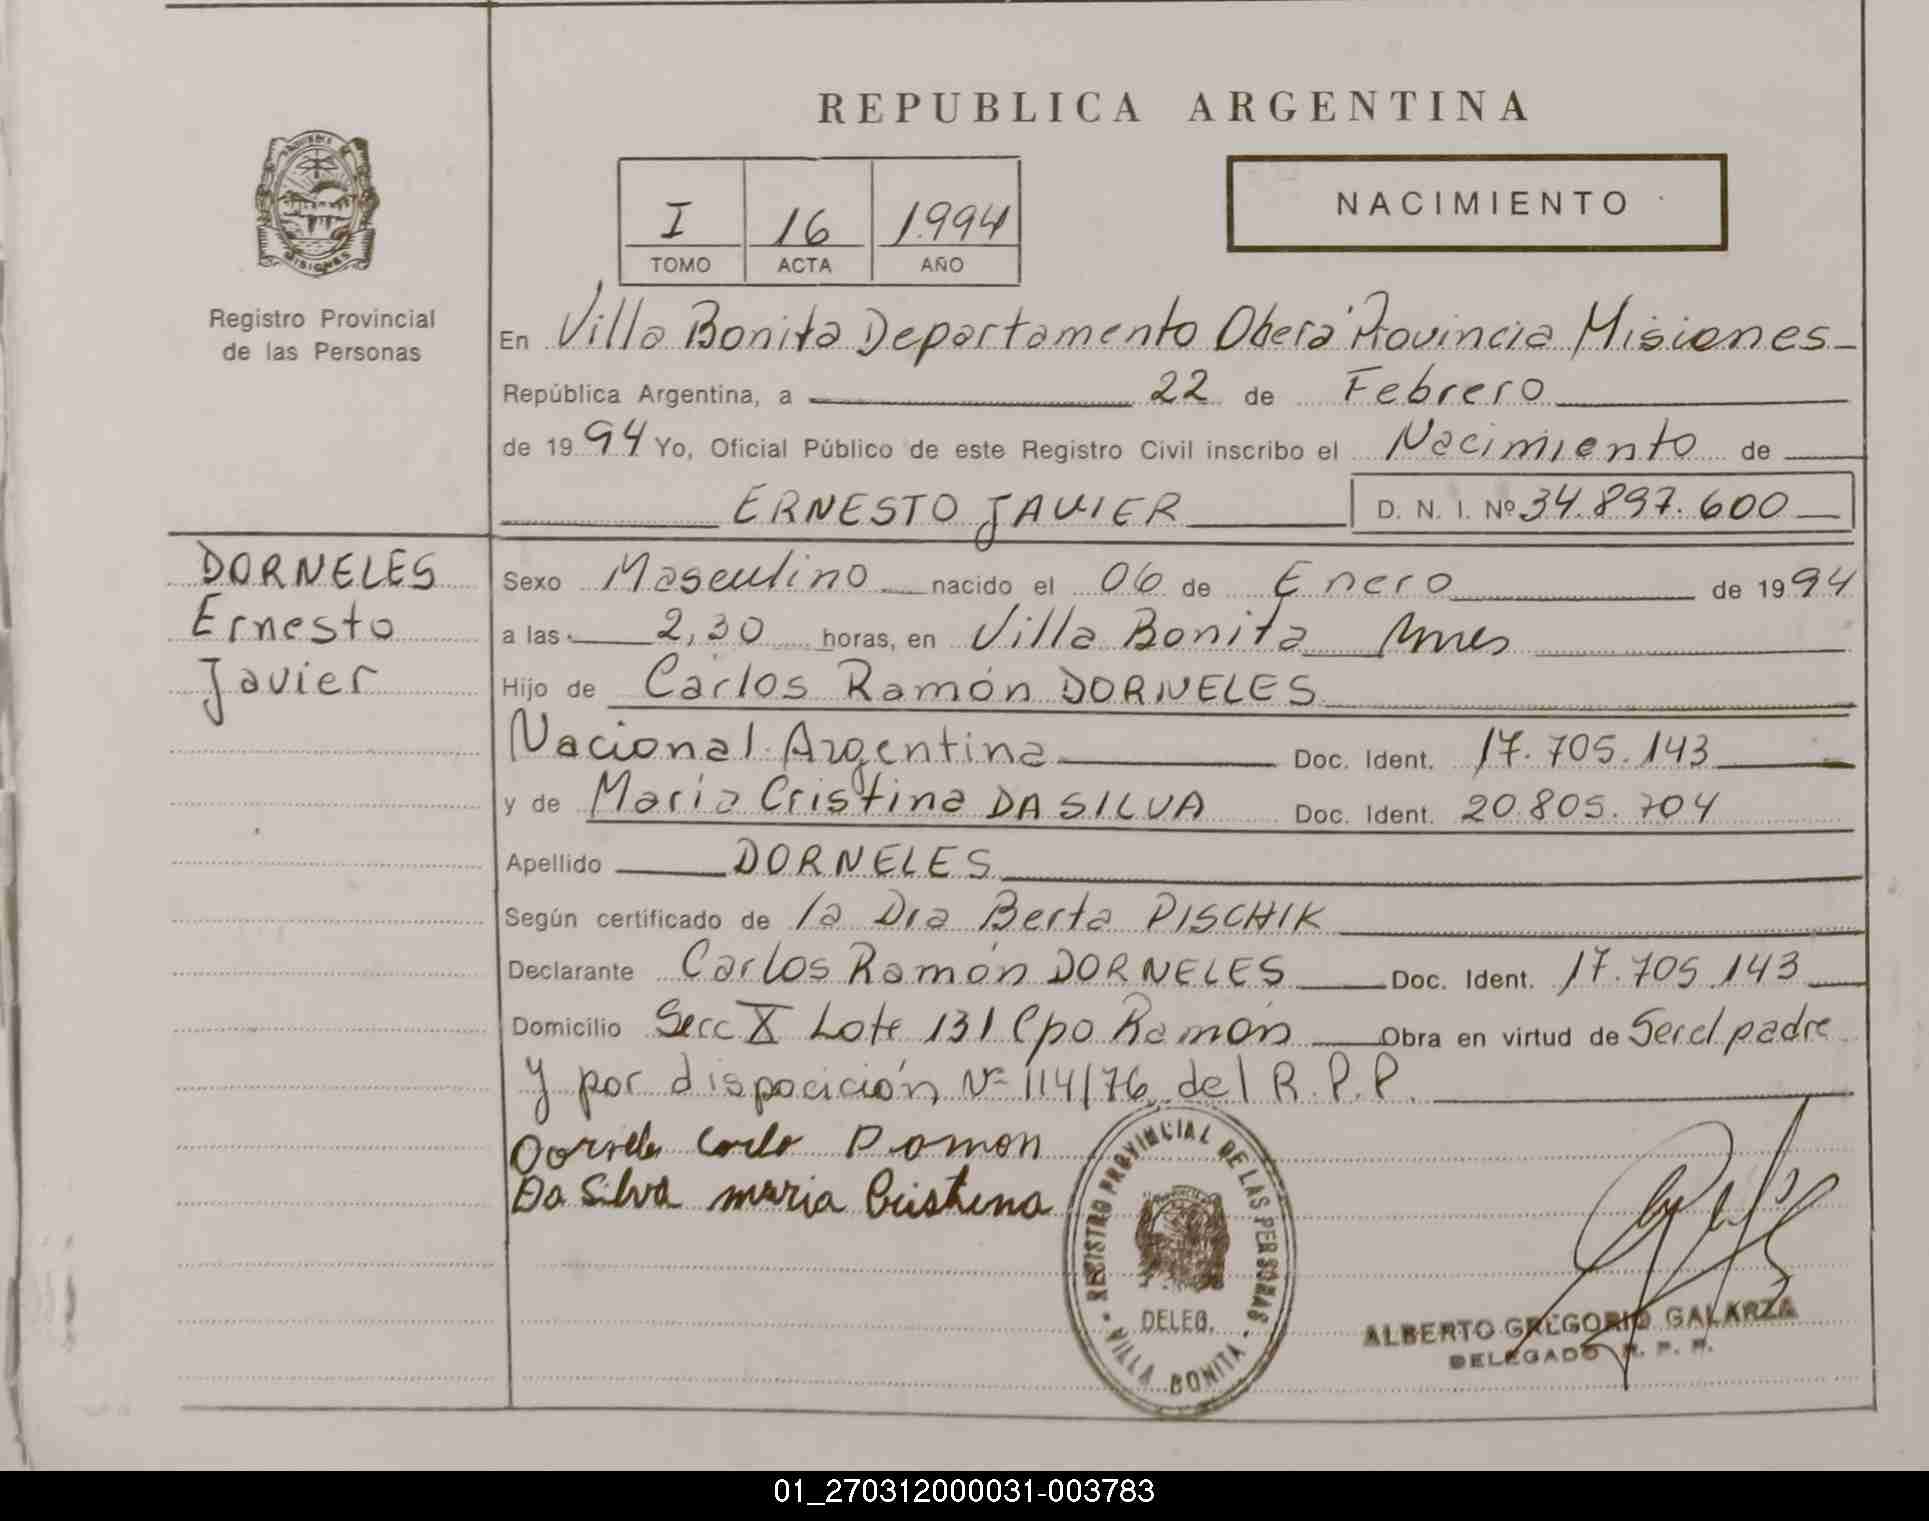 REPUBLICA ARGENTINA
PROVINCIA DE
MISIONES
Registro Provincial
de las Personas
I 16 1.994
TOMO ACTA AÑO
NACIMIENTO
En Villa Bonita Departamento Oberá Provincia Misiones
República Argentina, a 22 de Febrero
de 1994 Yo, Oficial Público de este Registro Civil inscribo el Nacimiento de
ERNESTO JAVIER D. N. I. Nº 34.897.600
DORNELES
Ernesto
Javier
Sexo Masculino nacido el 06 de Enero de 1994
a las 2,30 horas, en Villa Bonita Mnes
Hijo de Carlos Ramón DORNELES
Nacional Argentina Doc. Ident. 17.705.143
y de María Cristina DA SILVA Doc. Ident. 20.805.704
Apellido DORNELES
Según certificado de la Dra Berta PISCHIK
Declarante Carlos Ramón DORNELES Doc. Ident. 17.705.143
Domicilio Secc X Lote 131 Cpo Ramón Obra en virtud de Ser el padre
y por disposición Nº 114/76 del R.P.P.
Dornele Carlo Ramon
Da Silva maria Cristina
REGISTRO PROVINCIAL DE LAS PERSONAS
DELEG.
VILLA BONITA
ALBERTO GREGORIO GALARZA
DELEGADO R. P. P.
01_270312000031-003783